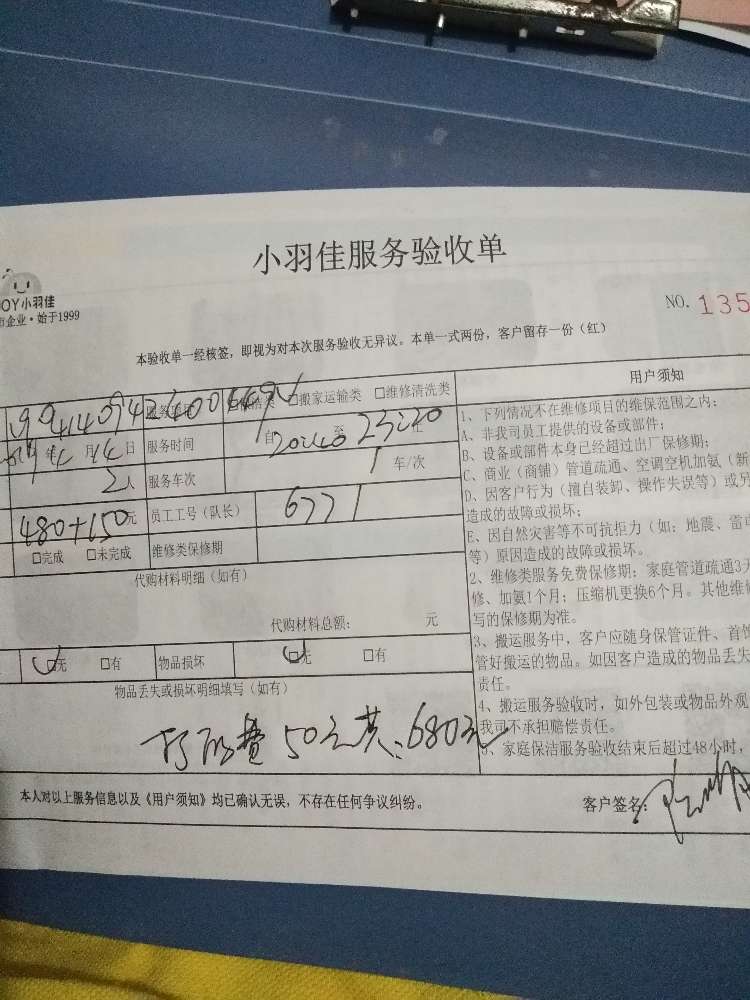 小羽佳服务验收单
OY小羽佳
企业·始于1999
NO. 135
本验收单一经核签，即视为对本次服务验收无异议。本单一式两份，客户留存一份（红）
□搬家运输类 □维修清洗类
年 月 14日 服务时间 自 20:40 至 23:20 止
2人 服务车次 1 车/次
480+150元 员工工号（队长） 6771
□完成 □未完成 维修类保修期
代购材料明细（如有）
代购材料总额： 元
□无 □有 物品损坏 □无 □有
物品丢失或损坏明细填写（如有）
50元共：680元
用户须知
1、下列情况不在维修项目的维保范围之内：
A、非我司员工提供的设备或部件；
B、设备或部件本身已经超过出厂保修期；
C、商业（商铺）管道疏通、空调空机加氨（新
D、因客户行为（擅自装卸、操作失误等）或另
造成的故障或损坏；
E、因自然灾害等不可抗拒力（如：地震、雷
等）原因造成的故障或损坏。
2、维修类服务免费保修期：家庭管道疏通3天
修、加氨1个月；压缩机更换6个月。其他维
写的保修期为准。
3、搬运服务中，客户应随身保管证件、首饰
管好搬运的物品。如因客户造成的物品丢失
责任。
4、搬运服务验收时，如外包装或物品外观
我司不承担赔偿责任。
5、家庭保洁服务验收结束后超过48小时，
本人对以上服务信息以及《用户须知》均已确认无误，不存在任何争议纠纷。
客户签名：